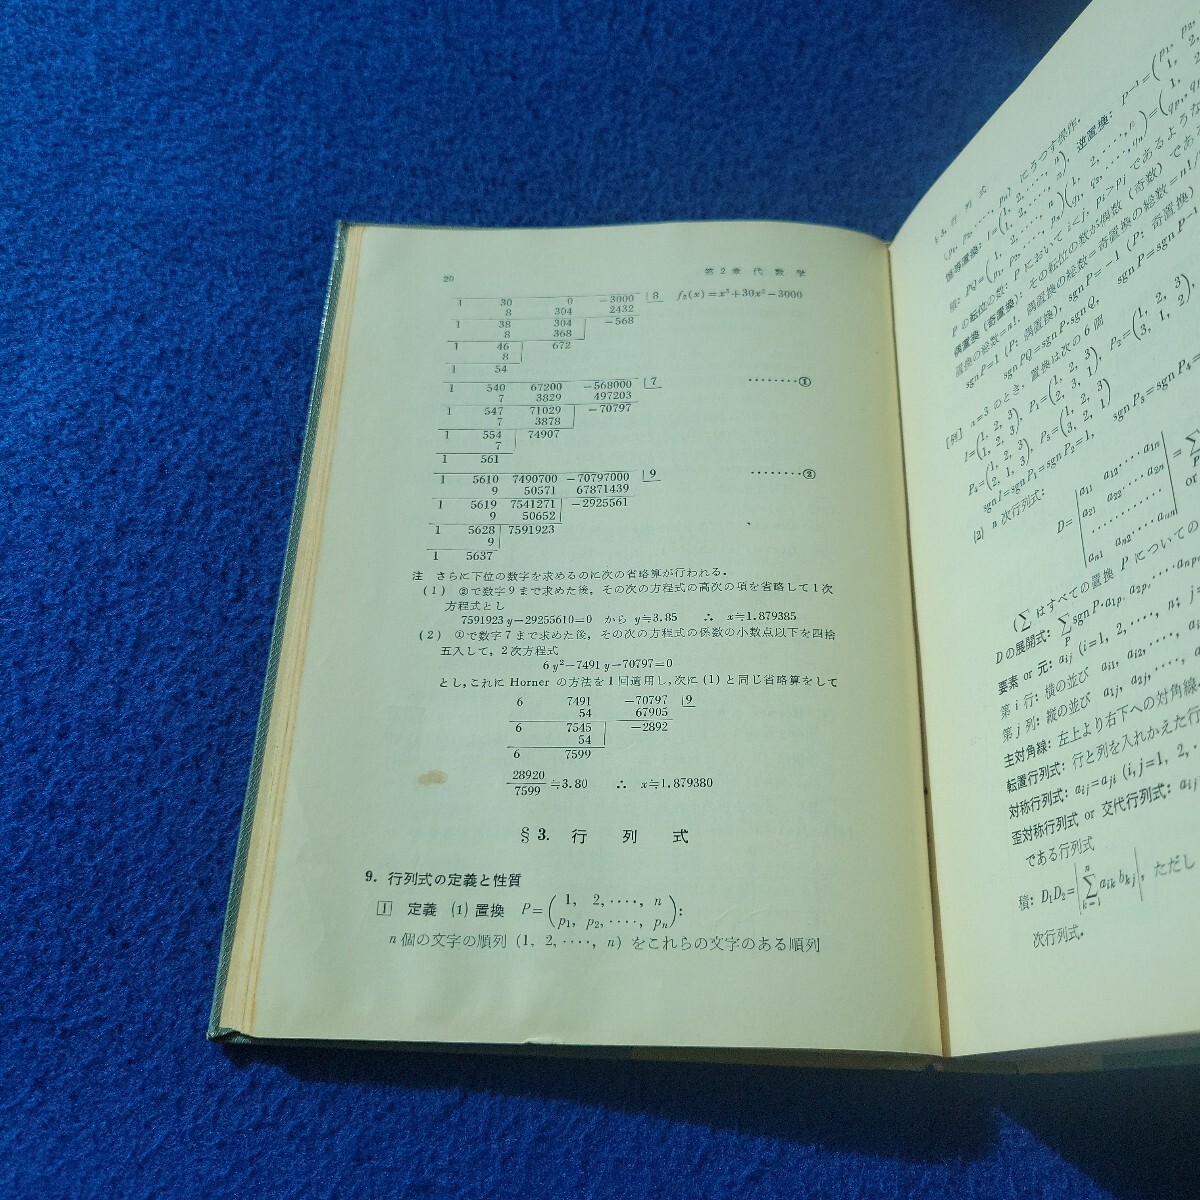 20 第2章 代数学
1 30 0 −3000 |8 f₂(x)=x³+30x²−3000
8 304 2432
1 38 304 −568
8 368
1 46 672
8
1 54
1 540 67200 −568000 |7 ········①
7 3829 497203
1 547 71029 −70797
7 3878
1 554 74907
7
1 561
1 5610 7490700 −70797000 |9 ········②
9 50571 67871439
1 5619 7541271 −2925561
9 50652
1 5628 7591923
9
1 5637
注 さらに下位の数字を求めるのに次の省略算が行われる.
(1) ②で数字9まで求めた後, その次の方程式の高次の項を省略して1次
方程式とし
7591923y−29255610=0 から y≒3.85 ∴ x≒1.879385
(2) ①で数字7まで求めた後, その次の方程式の係数の小数点以下を四捨
五入して, 2次方程式
6y²−7491y−70797=0
とし, これに Horner の方法を1回適用し, 次に (1) と同じ省略算をして
6 7491 −70797 |9
54 67905
6 7545 −2892
54
6 7599
28920/7599≒3.80 ∴ x≒1.879380
§3. 行列式
9. 行列式の定義と性質
1 定義 (1) 置換 P=(1, 2,····, n
p₁, p₂,····, pₙ):
n個の文字の順列 (1, 2,····, n) をこれらの文字のある順列
§3. 行列式
(p₁, p₂,····, pₙ) にうつす操作.
恒等置換: I=(1, 2,····, n
1, 2,····, n), 逆置換: P⁻¹=(p₁, p₂,
1, 2,
積: PQ=(1, 2,····, n
p₁, p₂,····, pₙ)(1, 2,····, n
q₁, q₂,····, qₙ)
Pの転位の数: P において i<j, pᵢ>pⱼ であるような
偶置換 (奇置換): その転位の数が偶数 (奇数) であ
置換の総数=n!, 偶置換の総数=奇置換の総数=n!/
sgn P=1 (P: 偶置換), sgn P=−1 (P: 奇置換)
sgn PQ=sgn P·sgn Q, sgn P=sgn P⁻¹
[例] n=3 のとき, 置換は次の6個
I=(1, 2, 3
1, 2, 3), P₁=(1, 2, 3
2, 3, 1), P₂=(1, 2, 3
3, 1, 2),
P₄=(1, 2, 3
2, 1, 3), P₅=(1, 2, 3
3, 2, 1)
sgn I=sgn P₁=sgn P₂=1, sgn P₃=sgn P₄=
(2) n次行列式:
D=|a₁₁ a₁₂····a₁ₙ
a₂₁ a₂₂····a₂ₙ
············
aₙ₁ aₙ₂····aₙₙ|=∑
or
(∑はすべての置換 P についての
Dの展開式: ∑ sgn P·a₁p₁ a₂p₂····
要素 or 元: aᵢⱼ (i=1, 2,····, n; j=
第i行: 横の並び aᵢ₁, aᵢ₂,····,
第j列: 縦の並び a₁ⱼ, a₂ⱼ,····,
主対角線: 左上より右下への対角線.
転置行列式: 行と列を入れかえた行
対称行列式: aᵢⱼ=aⱼᵢ (i, j=1, 2,
歪対称行列式 or 交代行列式: aᵢⱼ
である行列式
積: D₁D₂=|∑ aᵢₖbₖⱼ|, ただし
次行列式.